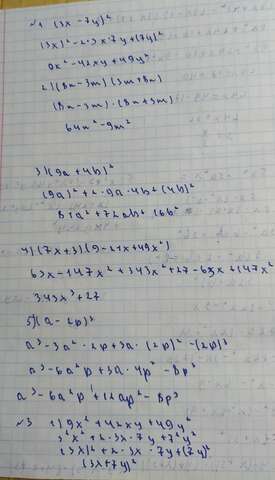 №1 (3x - 7y)²
(3x)² - 2·3x·7y + (7y)²
9x² - 42xy + 49y²
2)(8n - 3m)(3m + 8n)
(8n - 3m)·(8n + 3m)
64n² - 9m²
3)(9a + 4b)²
(9a)² + 2·9a·4b + (4b)²
81a² + 72ab + 16b²
4)(7x + 3)(9 - 21x + 49x²)
63x - 147x² + 343x³ + 27 - 63x + 147x²
343x³ + 27
5)(a - 2p)³
a³ - 3a²·2p + 3a·(2p)² - (2p)³
a³ - 6a²p + 3a·4p² - 8p³
a³ - 6a²p + 12ap² - 8p³
№3 1) 9x² + 42xy + 49y²
3²x² + 2·3x·7y + 7²y²
(3x)² + 2·3x·7y + (7y)²
(3x + 7y)²